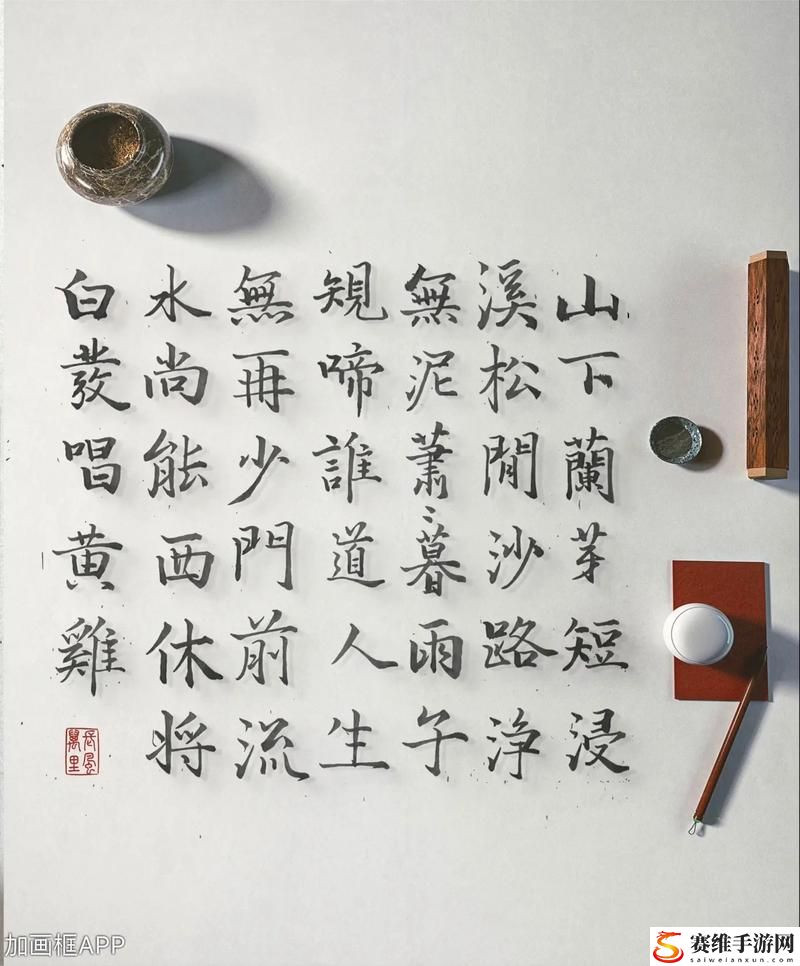 山下蘭芽短浸
溪松閒沙路淨
無泥蕭〻暮雨子
規啼誰道人生
無再少門前流
水尚能西休将
白發唱黄雞
長風萬里
加画框APP
赛维手游网
saiweianxun.com